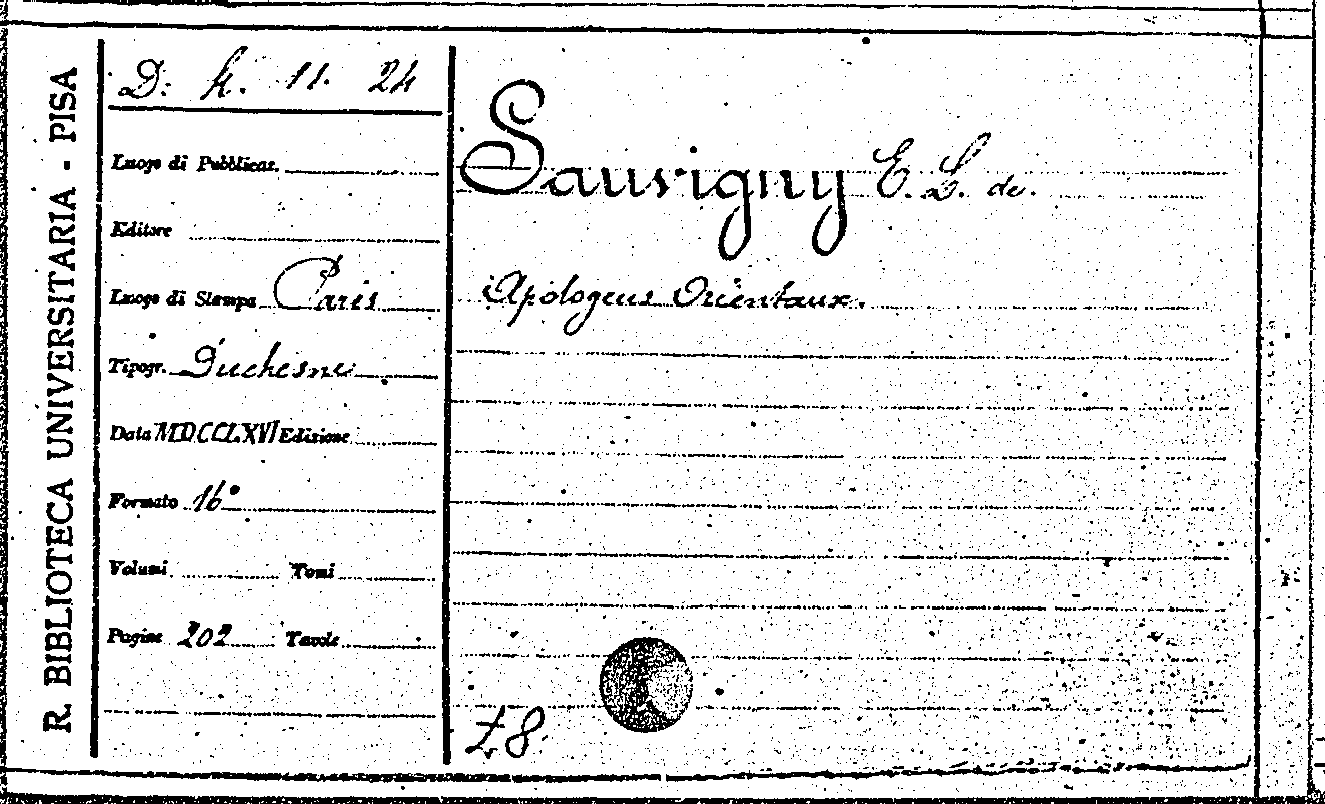 R. BIBLIOTECA UNIVERSITARIA - PISA
D: k. 11. 24
Luogo di Pubblicaz.
Editore
Luogo di Stampa Paris
Tipogr. Duchesne
Data MDCCLXVI Edizione
Formato 16°
Volumi Tomi
Pagine 202 Tavole
Sauvigny E. L. de.
Apologeus Orientaux.